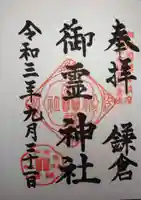 奉拝 鎌倉
御霊神社
令和三年九月三十日